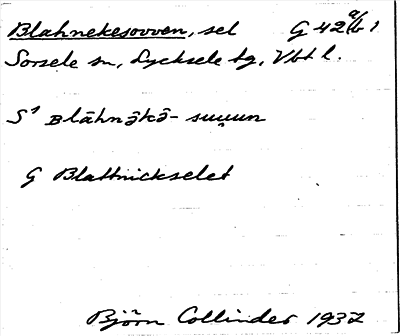 Blahnekesovven, sel G 42 a/b 1
Sorsele sn, Lycksele tg, Vbtl.
S¹ ʙlāhnə̄kə̄- suu̯un
G Blattnickselet
Björn Collinder 1937